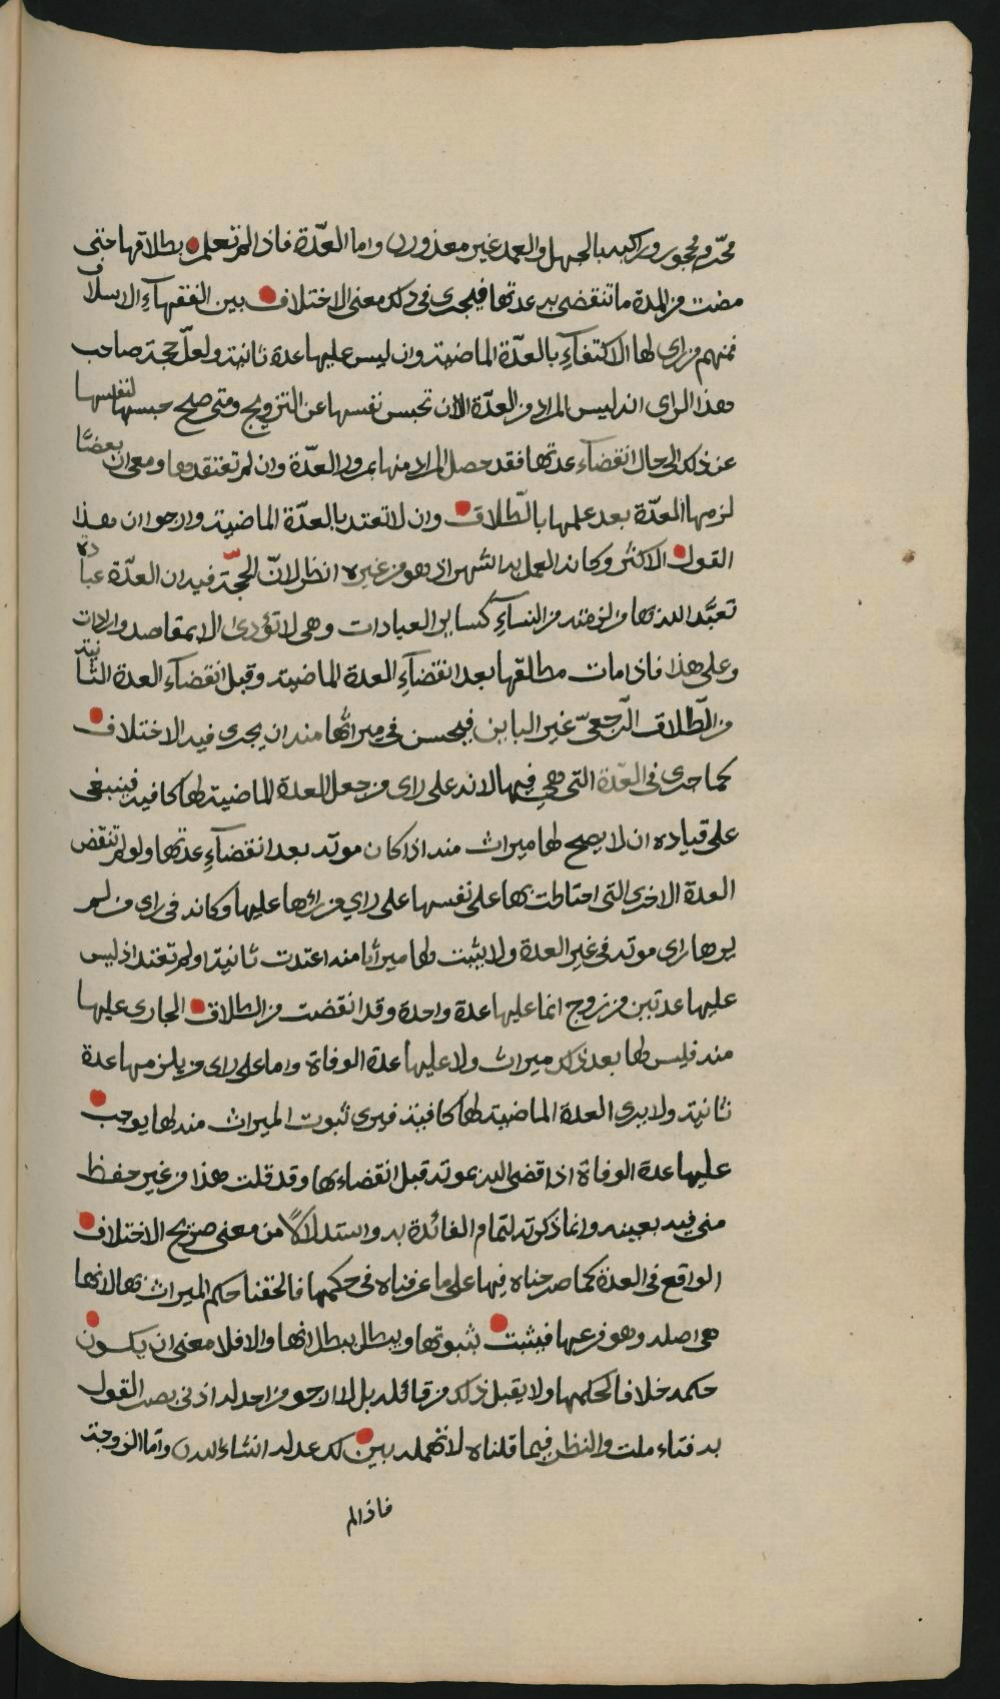 محرم محجور وراكبه بالجهل والعمد غير معذور واما العدّة فاذا لم تعلم بطلاقها حتى
مضت من المدة ما تنقضي به عدتها فيجري في ذلك معنى الاختلاف بين الفقهآء الاسلاف
فمنهم من راى لها الاكتفآء بالعدّة الماضية وان ليس عليها عدة ثانية ولعلّ حجة صاحب
هذا الراى انه ليس المراد من العدّة الا ان تحبس نفسها عن التزويج ومتى صلح حبسها لنفسها
عن ذلك الى حال انقضآء عدتها فقد حصل المراد منها بمرور العدّة وان لم تعتقدها ومعي ان بعضًا
لزمها العدّة بعد علمها بالطّلاق وان لا تعتد بالعدّة الماضية وارجوا ان هذا
القول الاكثر وكانه العمل به اشهر اذ هو من غيره انظر لانّ الحجّة فيه ان العدّة عبادة
تعبَّد الله بها من لزمته من النسآء كساير العبادات وهي لا تؤدى الا بمقاصد وارادات
وعلى هذا فاذا مات مطلقها بعد انقضآء العدة الماضية وقبل انقضآء العدة الثانية
من الطّلاق الرّجعيّ غير الباين فيحسن في ميراثها منه ان يجرى فيه الاختلاف
كما جرى في العدّة التي هي فيها لانه على راى من جعل العدة الماضية لها كافية فينبغى
على قياده ان لا يصح لها ميراث منه اذا كان موته بعد انقضآء عدتها ولو لم تنقض
العدة الاخرى التي احتاطت بها على نفسها على راي من رائها عليها وكانه في راى من لم
يرها راى موته في غير العدة ولا يثبت لها ميراثا منه اعتدت ثانية او لم تعتد اذ ليس
عليها عدتين من زوج انما عليها عدة واحدة وقد انقضت من الطلاق الجارى عليها
منه فليس لها بعد ذلك ميراث ولا عليها عدة الوفاة واما على راى من يلزمها عدة
ثانية ولا يرى العدة الماضية لها كافية فيرى ثبوت الميراث منه لها يوجب
عليها عدة الوفاة اذا قضى الله بموته قبل انقضاءها وقد قلت هذا من غير حفظ
منى فيه بعينه وانما ذكرته لتمام الفائدة به واستدلالاً من معنى صريح الاختلاف
الواقع في العدة كما صرحناه فيها على ما عرفناه في حكمها فالحقنا حكم الميراث بها لانها
هي اصله وهو فرعها فيثبت بثبوتها ويبطل ببطلانها والا فلا معنى ان يكون
حكمه خلافا لحكمها ولا يقبل ذلك من قائله بل لا ارجو من احد له ادنى بصر القول
به فتاء ملت والنظر فيما قلناه لا تهمله يبين لك عدله انشاءالله واما الزوجة
فاذا لم